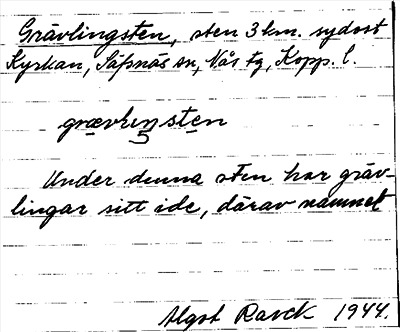 Grävlingsten, sten 3 km. sydost
Kyrkan, Säfsnäs sn, Nås tg, Kopp. l.
grævliŋsten
Under denna sten har gräv-
lingar sitt ide, därav namnet
Algot Ravck 1944.